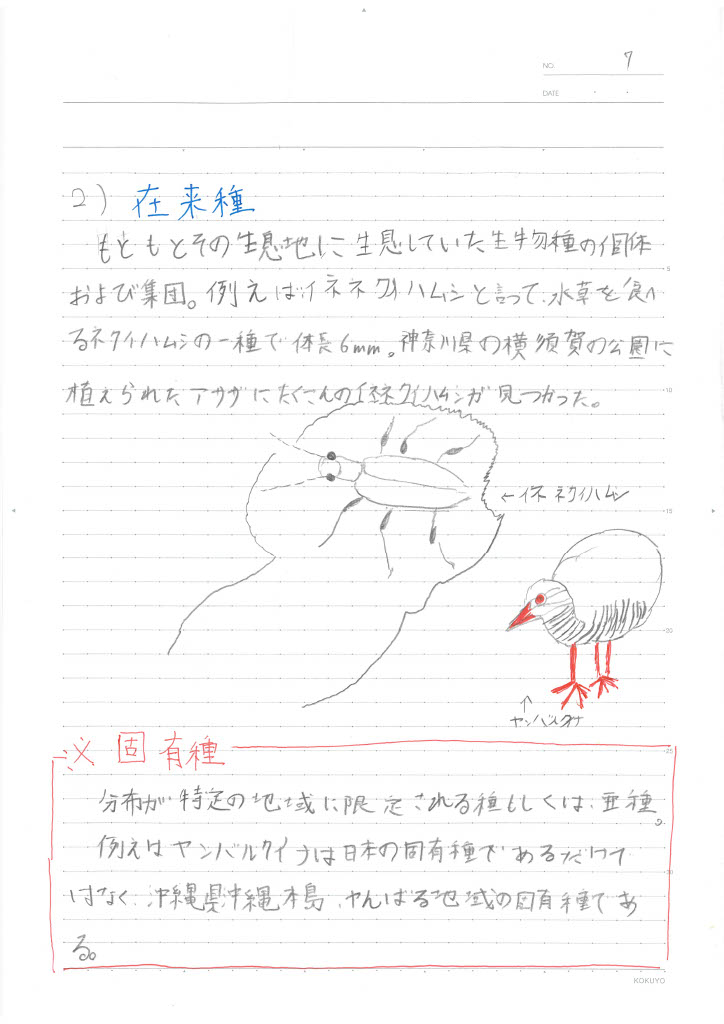 NO. 7
DATE
2) 在来種
もともとその生息地に生息していた生物種の個体
および集団。例えばイネネクイハムシと言って、水草を食べ
るネクイハムシの一種で体長6mm。神奈川県の横須賀の公園に
植えられたアサザにたくさんのイネネクイハムシが見つかった。
←イネネクイハムシ
↑
ヤンバルクイナ
※固有種
分布が特定の地域に限定される種もしくは、亜種。
例えばヤンバルクイナは日本の固有種であるだけで
はなく、沖縄県沖縄本島、やんばる地域の固有種であ
る。
KOKUYO